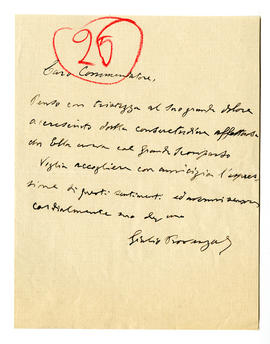 26
Caro Commendatore,
Penso con tristezza al Suo grande dolore
accresciuto dalla consuetudine affettuosa
che Ella aveva col grande scomparso
Voglia accogliere con amicizia l'espres-
sione di questi sentimenti ed
cordialmente suo
Giulio Provenzal